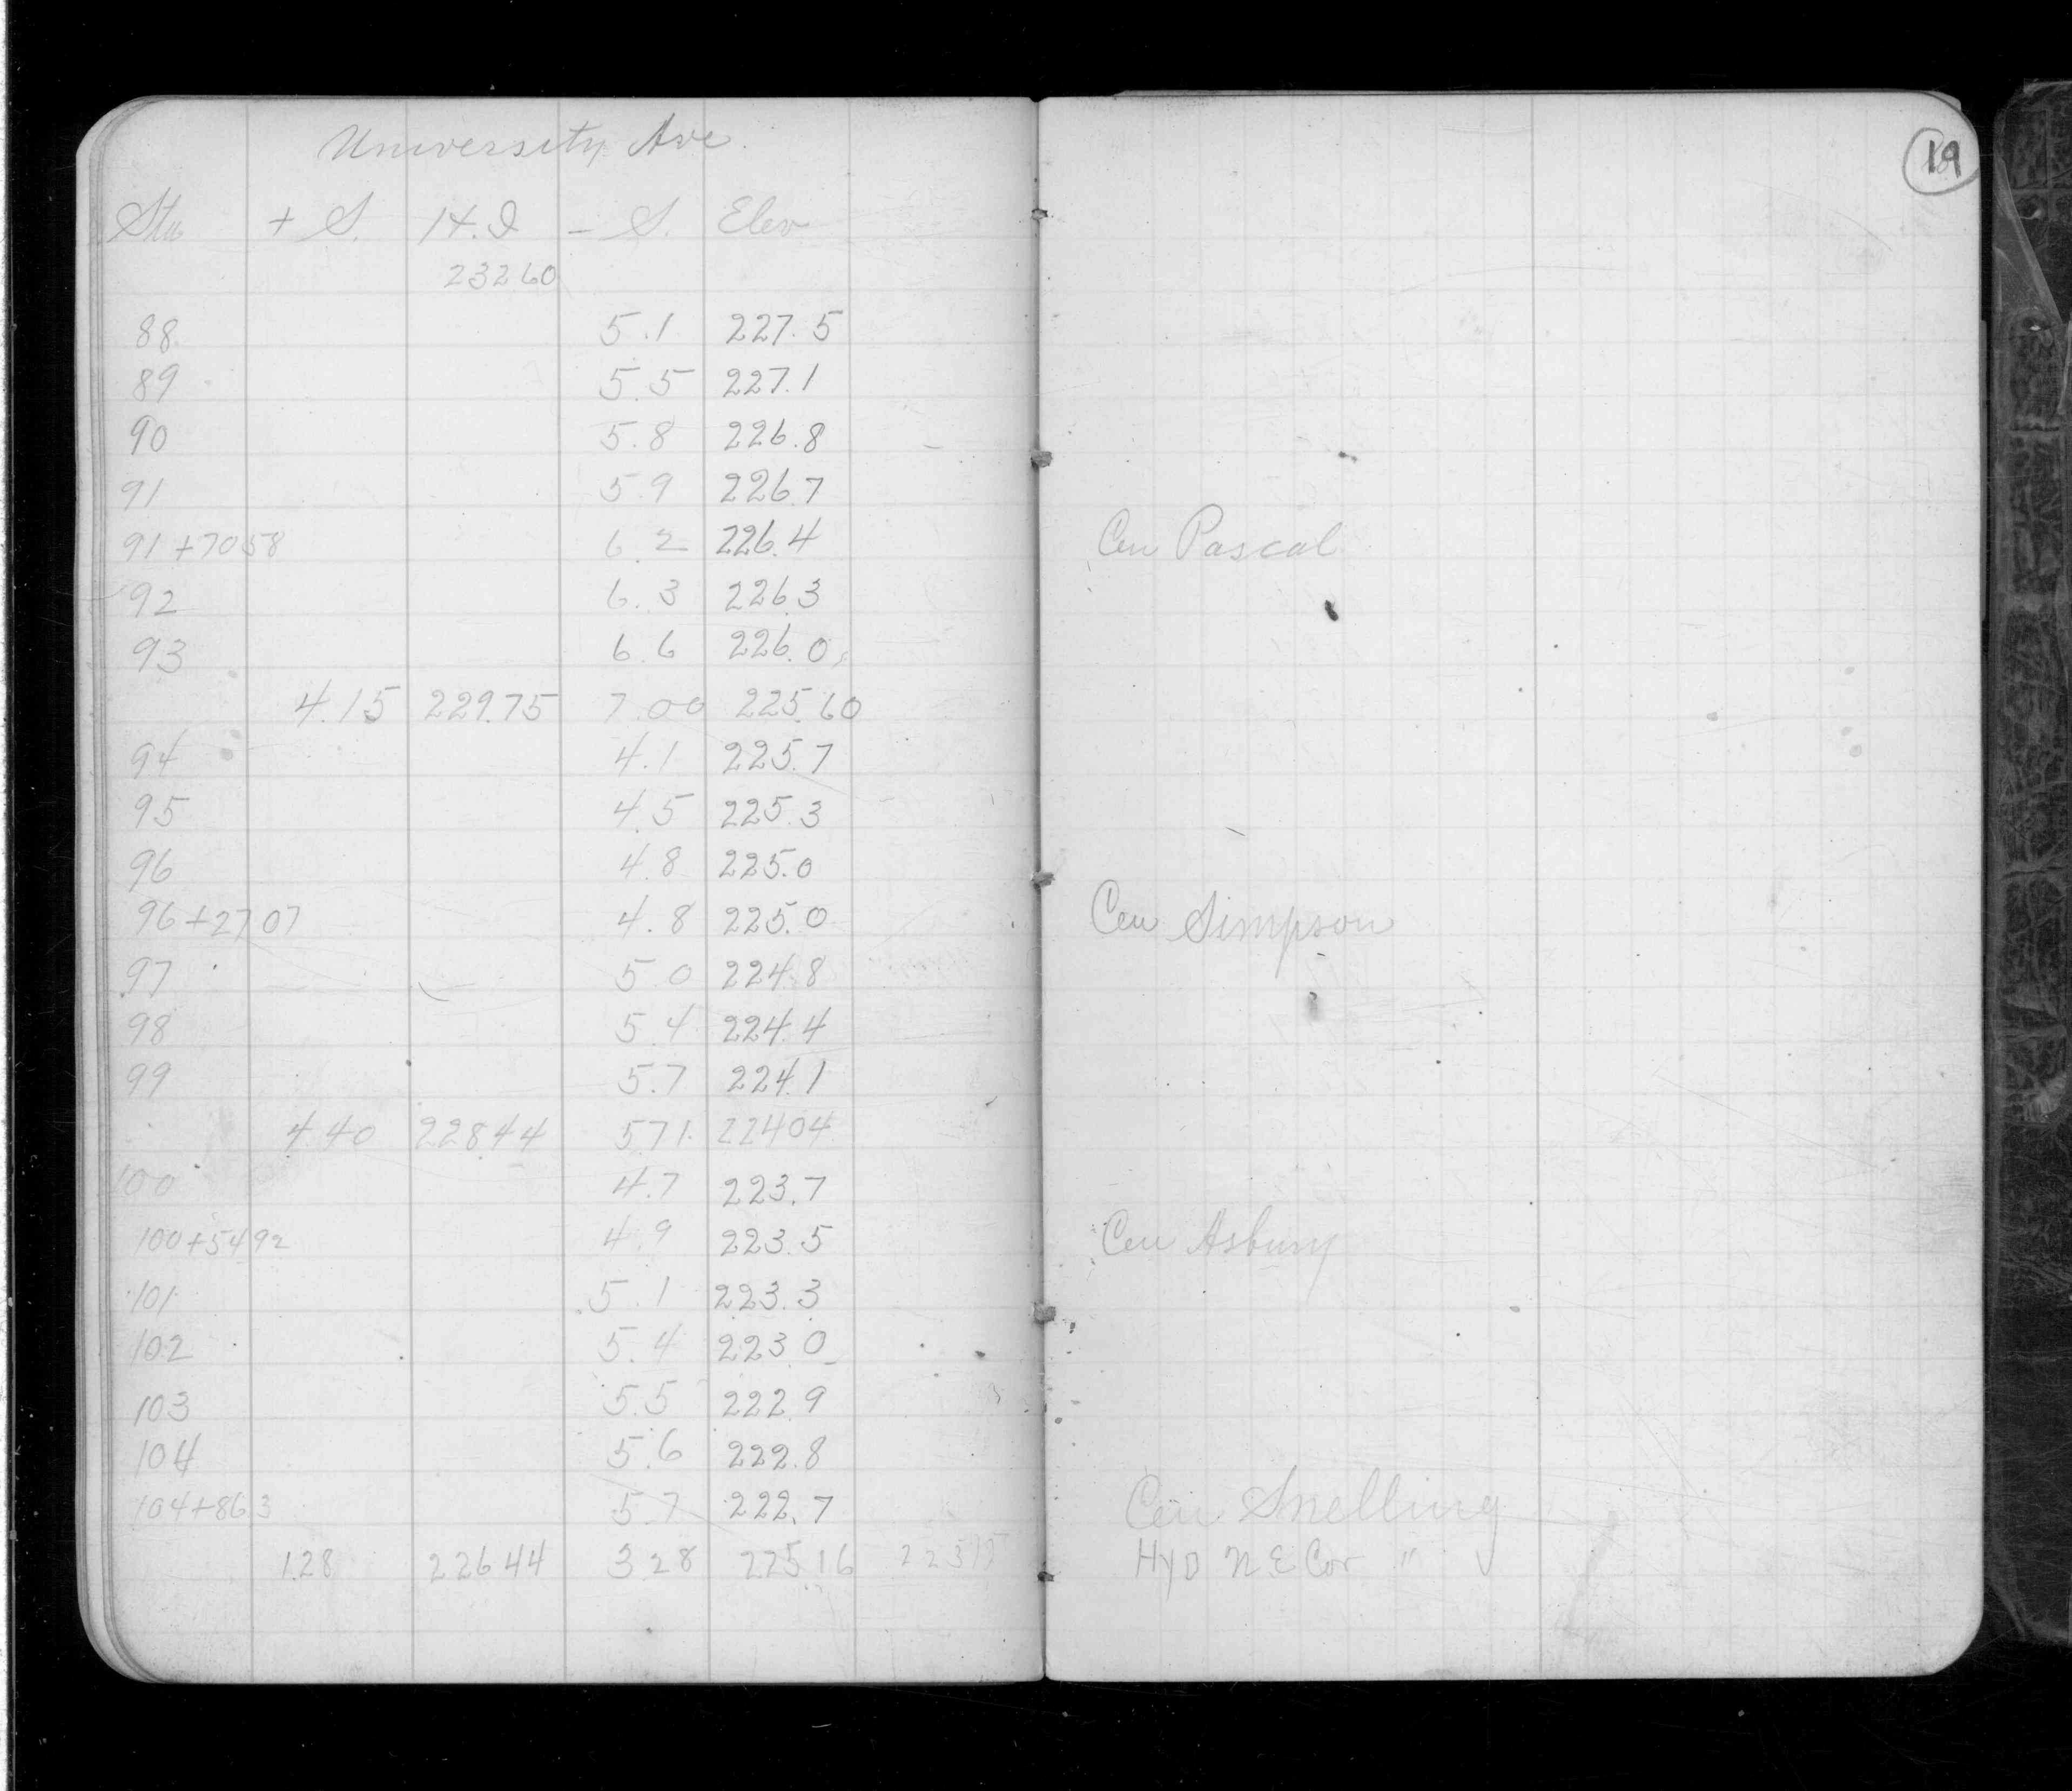 University Ave.
19
Sta + S. H.I - S. Elev
232 60
88 5.1 227.5
89 5.5 227.1
90 5.8 226.8
91 5 9 226 7
91+70 58 6.2 226.4 Cen Pascal
92 6.3 226.3
93 6.6 226.0
4.15 229.75 7.00 225.60
94 4.1 225.7
95 4.5 225.3
96 4.8 225.0
96+27 07 4.8 225.0 Cen Simpson
97 5 0 224.8
98 5.4 224.4
99 5.7 224.1
4 40 228.44 5 71 224 04
100 4.7 223.7
100+54 92 4.9 223.5 Cen Asbury
101 5.1 223.3
102 5.4 223 0
103 5.5 222 9
104 5.6 222.8
104+86 3 5.7 222.7 Cen Snelling
1.28 226 44 3 28 225 16 Hyd N E Cor "